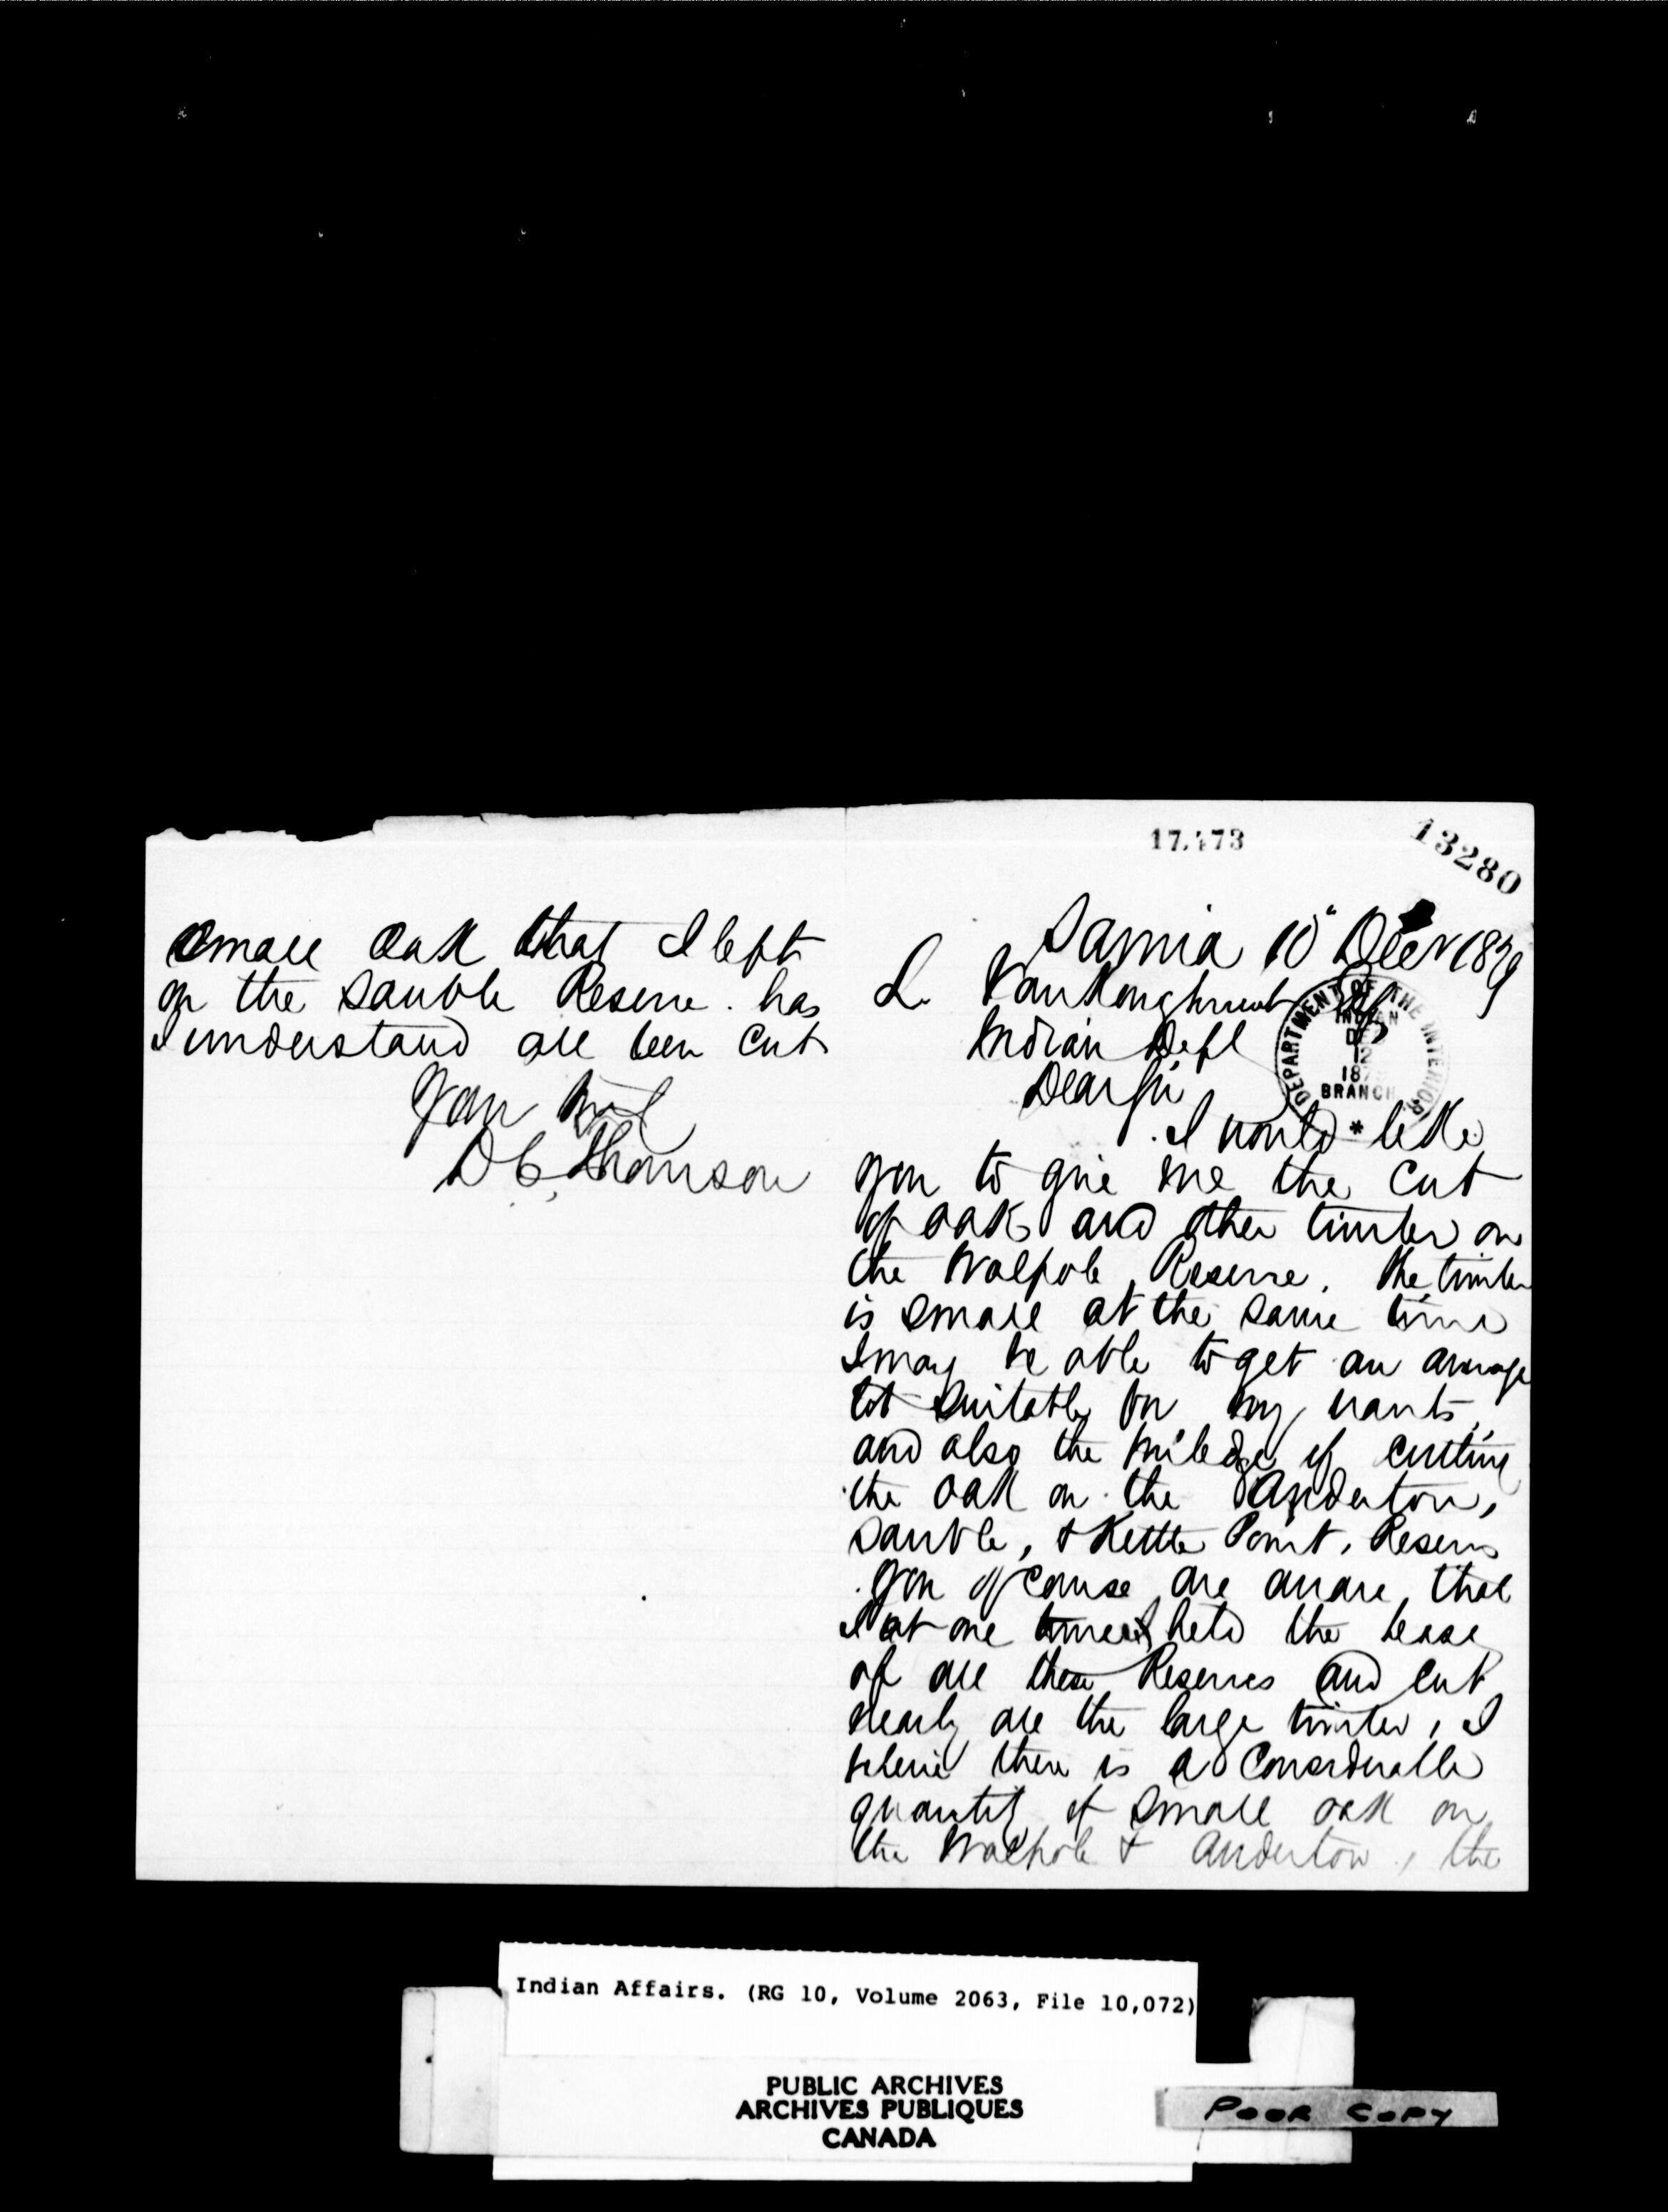 17.173
13280
Sarnia 10" Decr 1879
L. VanKoughnuet Esq
Indian Dept
DEPARTMENT OF THE INTERIOR
INDIAN
DE
12
187
BRANCH
Dear Sir
I would * like
you to give me the cut
of oak and other timber on
the Walpole Reserve. The timber
is small at the same time
I may be able to get an average
lot suitable for my wants,
and also the of cutting
the oak on the Anderton,
Sauble, & Kettle Point, Reserves
you of course are aware that
I at one time held the lease
of all these Reserves and cut
nearly all the large timber, I
beleive there is a Considerable
quantity of small oak on
the Walpole & Anderton, the
small oak that I left
on the Sauble Reserve. has
I understand all been cut
Your truly
D C Thomson
Indian Affairs. (RG 10, Volume 2063, File 10,072)
PUBLIC ARCHIVES
ARCHIVES PUBLIQUES
CANADA
POOR COPY